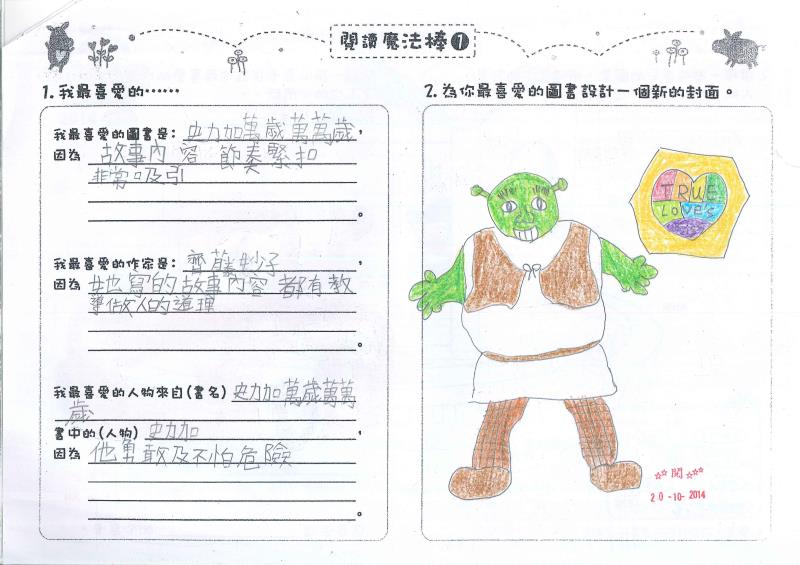 閱讀魔法棒1
1.我最喜愛的……
我最喜愛的圖書是：史力加萬歲萬萬歲，
因為 故事內容 節奏緊扣
非常吸引
。
我最喜愛的作家是：齊藤妙子，
因為 她寫的故事內容都有教
導做人的道理
。
我最喜愛的人物來自(書名)史力加萬歲萬萬
歲
書中的(人物)史力加，
因為 他勇敢及不怕危險
。
2.為你最喜愛的圖書設計一個新的封面。
TRUE
LOVES
閱
20-10-2014